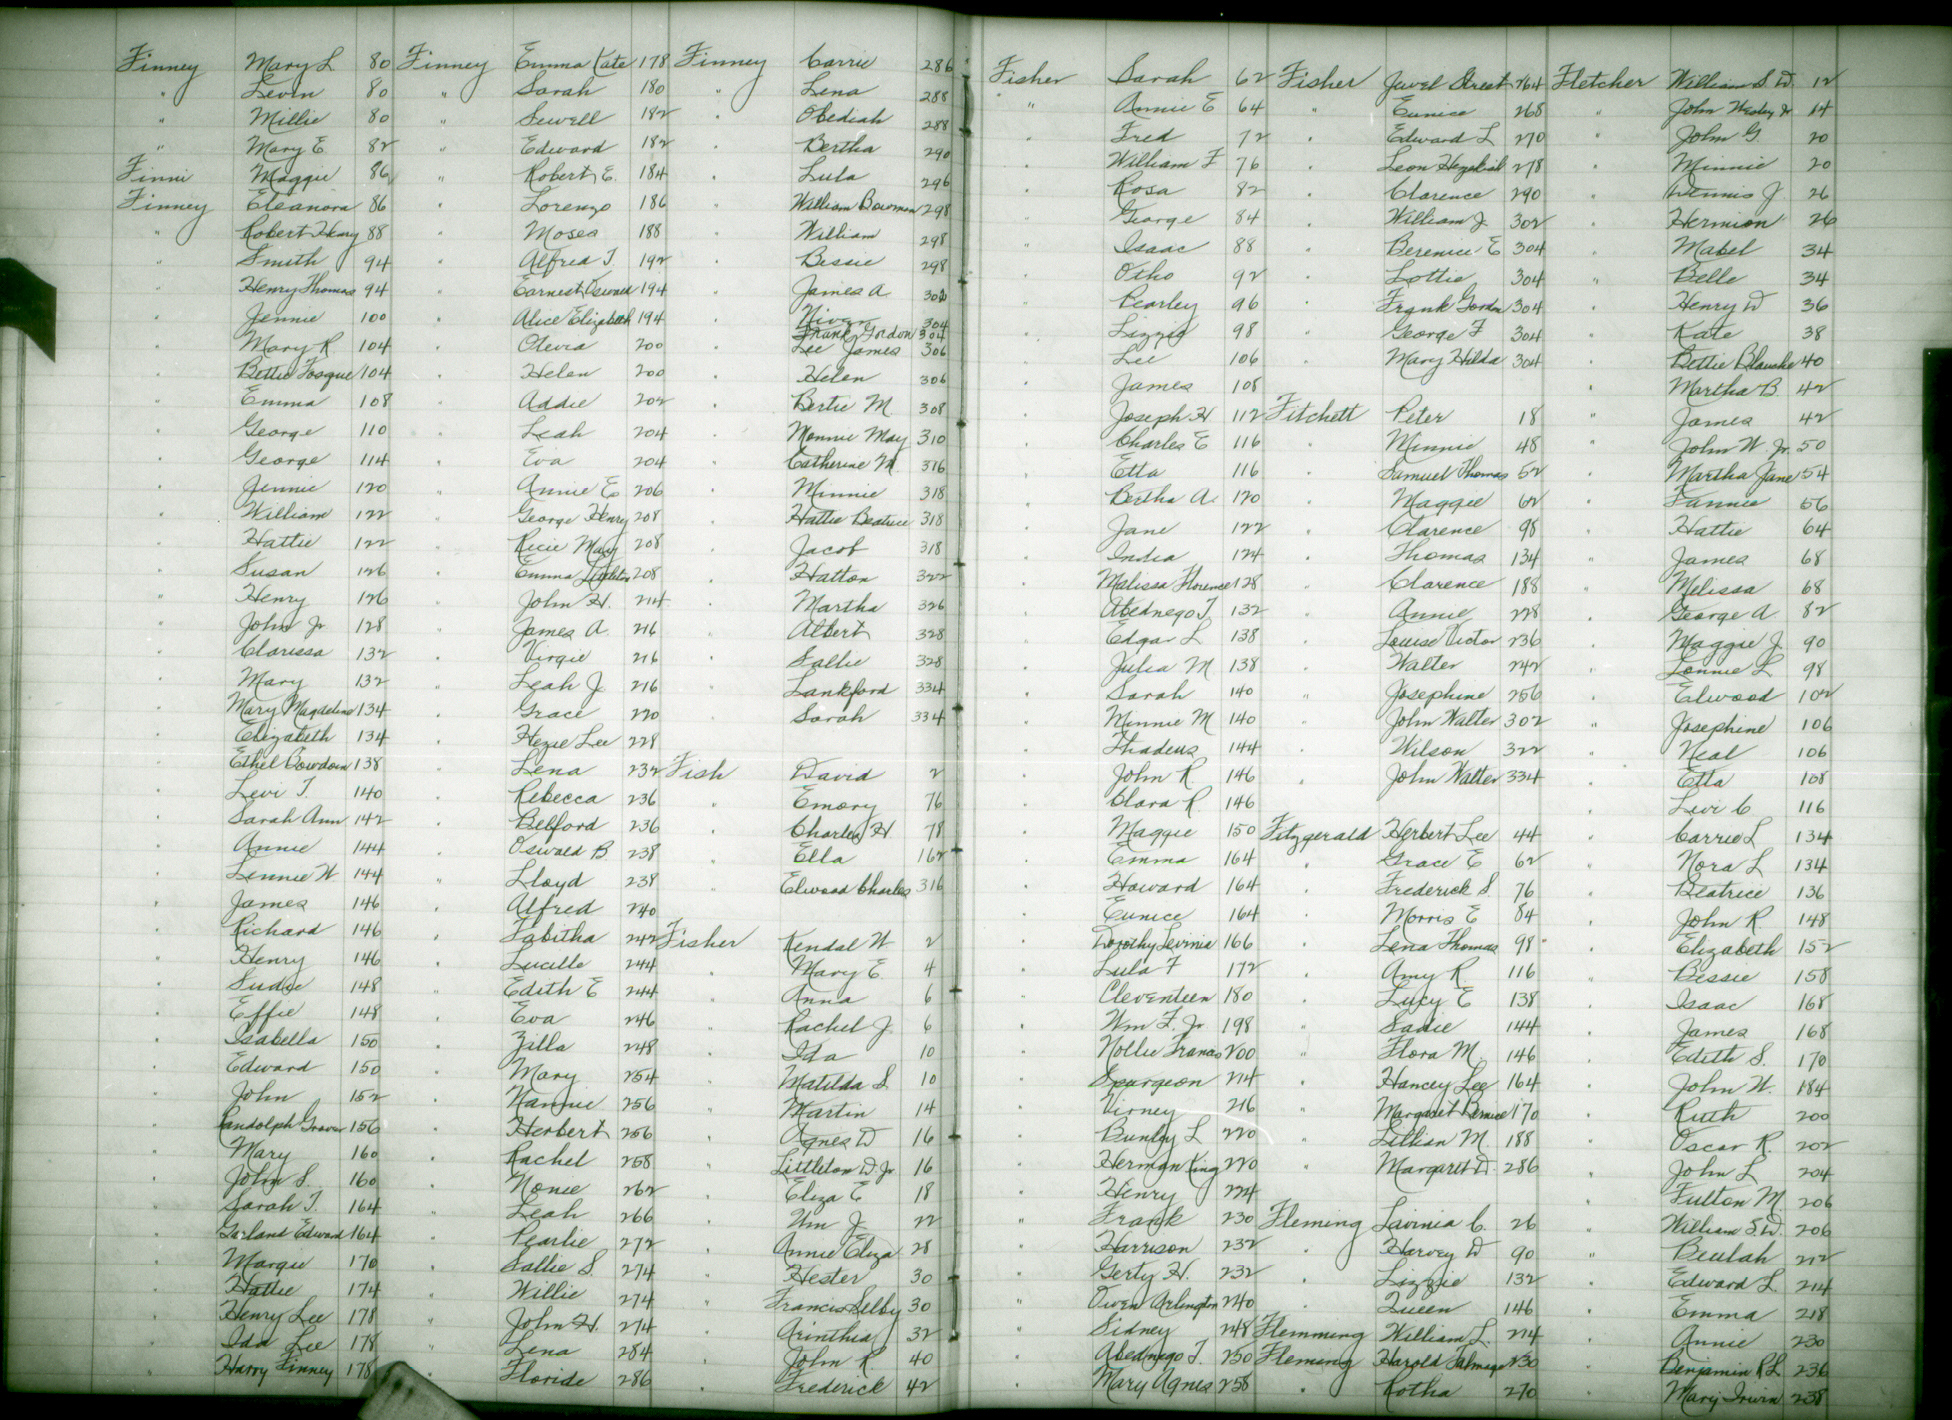 Finney Mary L 80
" Levin 80
" Millie 80
" Mary E 82
Finni Maggie 86
Finney Eleanora 86
" Robert Henry 88
" Smith 94
" Henry Thomas 94
" Jennie 100
" Mary R. 104
" Bettie Fosque 104
" Emma 108
" George 110
" George 114
" Jennie 120
" William 122
" Hattie 122
" Susan 126
" Henry 126
" John Jr 128
" Clarissa 132
" Mary 132
" Mary Magdeline 134
" Elizabeth 134
" Ethel Bowdoin 138
" Levi T. 140
" Sarah Ann 142
" Annie 144
" Lennie W 144
" James 146
" Richard 146
" Henry 146
" Sudie 148
" Effie 148
" Isabella 150
" Edward 150
" John 152
" Randolph Grover 156
" Mary 160
" John S. 160
" Sarah T. 164
" Garland Edward 164
" Margie 170
" Hattie 174
" Henry Lee 178
" Ida Lee 178
" Harry Finney 178
Finney Emma Kate 178
" Sarah 180
" Sewell 182
" Edward 182
" Robert E. 184
" Lorenzo 186
" Moses 188
" Alfred T 192
" Earnest Oswald 194
" Alice Elizabeth 194
" Olevia 200
" Helen 200
" Addie 202
" Leah 204
" Eva 204
" Annie E 206
" George Henry 208
" Ricie Mary 208
" Emma Littleton 208
" John H. 214
" James A. 216
" Virgie 216
" Leah J. 216
" Grace 220
" Hezie Lee 228
" Lena 232
" Rebecca 236
" Belford 236
" Oswald B 238
" Lloyd 238
" Alfred 240
" Tabitha 242
" Lucille 244
" Edith E 244
" Eva 246
" Zilla 248
" Mary 254
" Nannie 256
" Herbert 256
" Rachel 258
" Nonie 262
" Leah 266
" Pearlie 272
" Sallie S. 274
" Willie 274
" John H. 274
" Lena 284
" Floride 286
Finney Carrie 286
" Lena 288
" Obediah 288
" Bertha 290
" Lula 296
" William Bowman 298
" William 298
" Bessie 298
" James A 302
" Niven 304
Frank Gordon 304
" Lee James 306
" Helen 306
" Bertie M 308
" Mennie May 310
" Catherine M. 316
" Minnie 318
" Hattie Beatrice 318
" Jacob 318
" Hatton 322
" Martha 326
" Albert 328
" Sallie 328
" Lankford 334
" Sarah 334
Fish David 2
" Emory 76
" Charles H 78
" Ella 162
" Elwood Charles 316
Fisher Kendal W 2
" Mary E. 4
" Anna 6
" Rachel J. 6
" Ida 10
" Matilda S. 10
" Martin 14
" Agnes D 16
" Littleton D. Jr 16
" Eliza E 18
" Wm J. 22
" Annie Eliza 28
" Hester 30
" Francis Selby 30
" Arinthia 32
" John R. 40
" Frederick 42
Fisher Sarah 62
" Annie E 64
" Fred 72
" William F 76
" Rosa 82
" George 84
" Isaac 88
" Otho 92
" Pearley 96
" Lizzie 98
" Lee 106
" James 108
" Joseph H 112
" Charles E 116
" Etta 116
" Bertha A. 120
" Jane 122
" India 124
" Malissa Florence 128
" Abednego T. 132
" Edgar L 138
" Julia M 138
" Sarah 140
" Minnie M 140
" Thadeus 144
" John R. 146
" Clara R. 146
" Maggie 150
" Emma 164
" Howard 164
" Eunice 164
" Dorothy Levinia 166
" Lula F 172
" Cleventeen 180
" Wm F. Jr 198
" Nollie Francis 200
" Spurgeon 214
" Virney 216
" Bunley L 220
" Herman King 220
" Henry 224
" Frank 230
" Harrison 232
" Gerty H. 232
" Owen Arlington 240
" Sidney 248
" Abednego T. 250
" Mary Agnes 258
Fisher Jewel Street 264
" Eunice 268
" Edward L 270
" Leon Hezekiah 278
" Clarence 290
" William J. 302
" Berenice E 304
" Lottie 304
" Frank Gordon 304
" George F 304
" Mary Hilda 304
Fitchett Peter 18
" Minnie 48
" Samuel Thomas 52
" Maggie 62
" Clarence 98
" Thomas 134
" Clarence 188
" Annie 228
" Louise Victor 236
" Walter 242
" Josephine 256
" John Walter 302
" Wilson 322
" John Walter 334
Fitzgerald Herbert Lee 44
" Grace E 62
" Frederick S. 76
" Morris E 84
" Lena Thomas 98
" Amy R 116
" Lucy E 138
" Sadie 144
" Flora M. 146
" Hancey Lee 164
" Margaret Bernice 170
" Lillian M. 188
" Margaret D. 286
Fleming Lavinia C. 26
" Harvey D 90
" Lizzie 132
" Queen 146
Flemming William L. 214
Fleming Harold Talmage 230
" Rotha 270
Fletcher William S. D. 12
" John Wesley Jr 14
" John G 20
" Minnie 20
" Dennis J. 26
" Hermion 26
" Mabel 34
" Belle 34
" Henry D 36
" Kate 38
" Bettie Blanche 40
" Martha B. 42
" James 42
" John W. Jr. 50
" Martha Jane 54
" Fannie 56
" Hattie 64
" James 68
" Melissa 68
" George A. 82
" Maggie J. 90
" Lonnie L 98
" Elwood 102
" Josephine 106
" Neal 106
" Etta 108
" Levi C 116
" Carrie L 134
" Nora L 134
" Beatrice 136
" John R. 148
" Elizabeth 152
" Bessie 158
" Isaac 168
" James 168
" Edith S. 170
" John W. 184
" Ruth 200
" Oscar R. 202
" John L 204
" Fulton M. 206
" William S. D. 206
" Beulah 212
" Edward L. 214
" Emma 218
" Annie 230
" Benjamin R L 236
" Mary Irwin 238